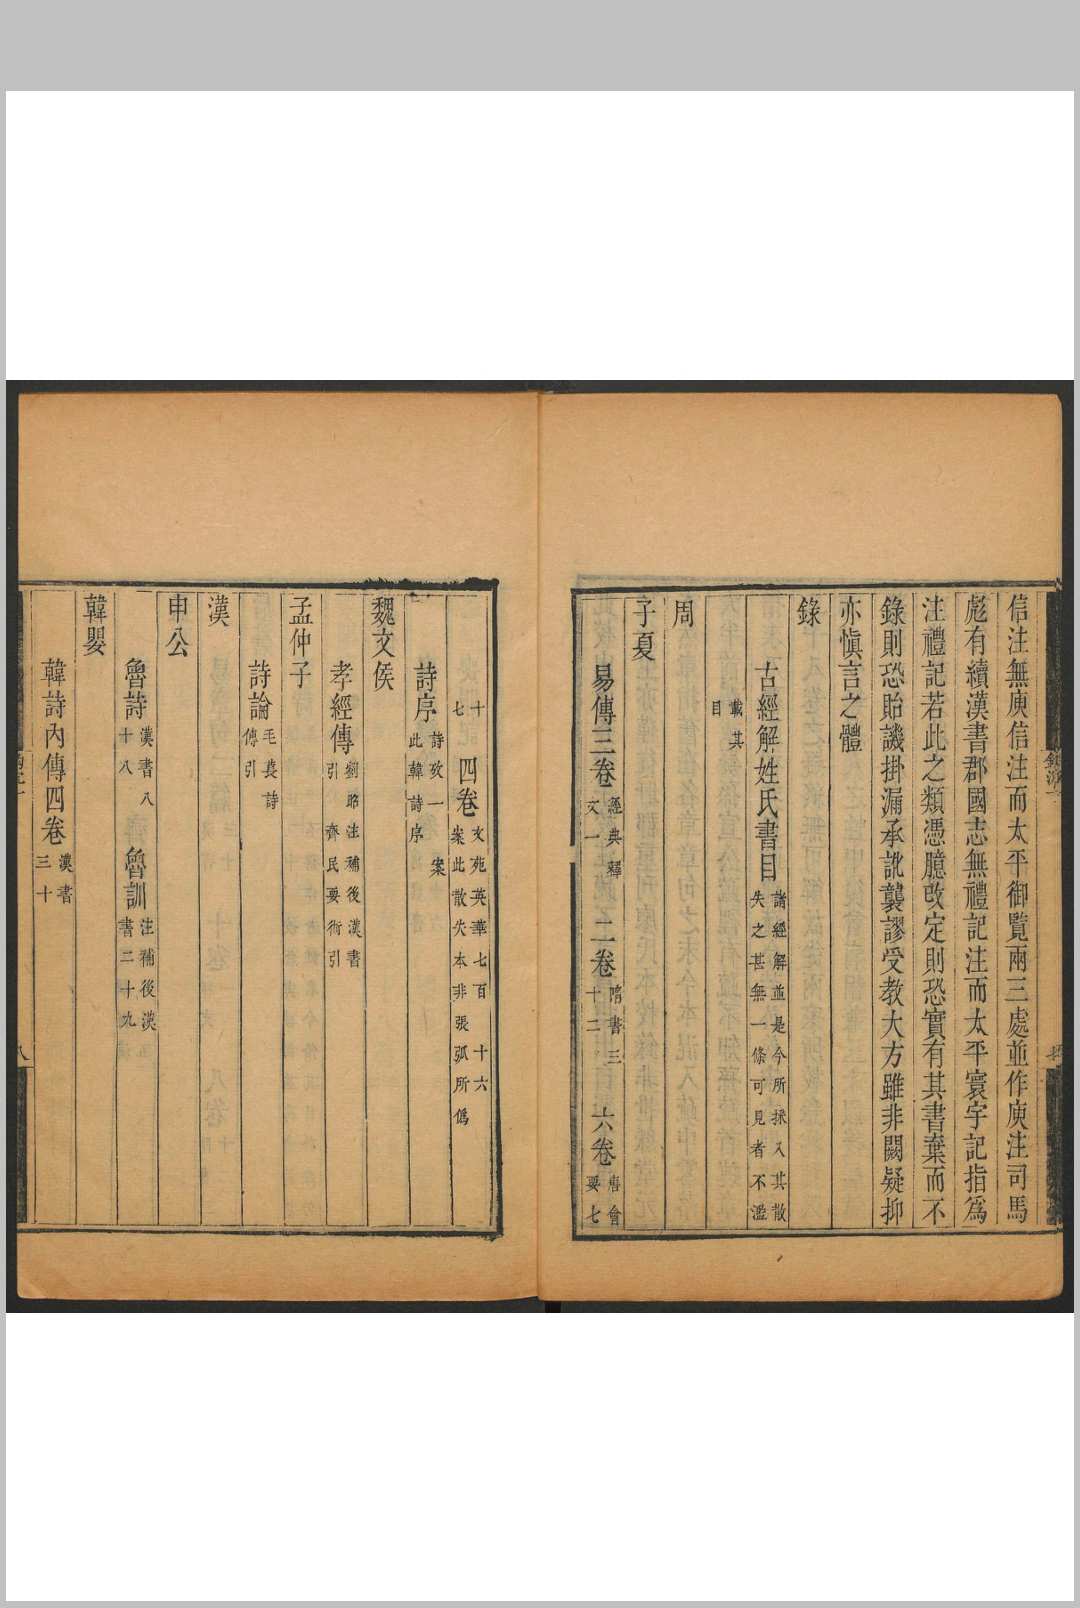 信注無庾信注而太平御覽兩三處並作庾注司馬
彪有續漢書郡國志無禮記注而太平寰宇記指爲
注禮記若此之類憑臆改定則恐實有其書棄而不
錄則恐貽譏掛漏承訛襲謬受教大方雖非闕疑抑
亦愼言之體
錄
古經解姓氏書目 諸經解並是今所採入其散
失之甚無一條可見者不濫
載其
目
周
子夏
易傳三卷 經典釋
文一 二卷 隋書三
十二 六卷 唐會
要七
十
七 四卷 文苑英華七百 十六
案此散失本非張弧所僞
詩序 詩攷一 案
此韓詩序
魏文侯
孝經傳 劉昭注補後漢書
引 齊民要術引
孟仲子
詩論 毛萇詩
傳引
漢
申公
魯詩 漢書八
十八 魯訓 注補後漢
書二十九
韓嬰
韓詩內傳四卷 漢書
三十